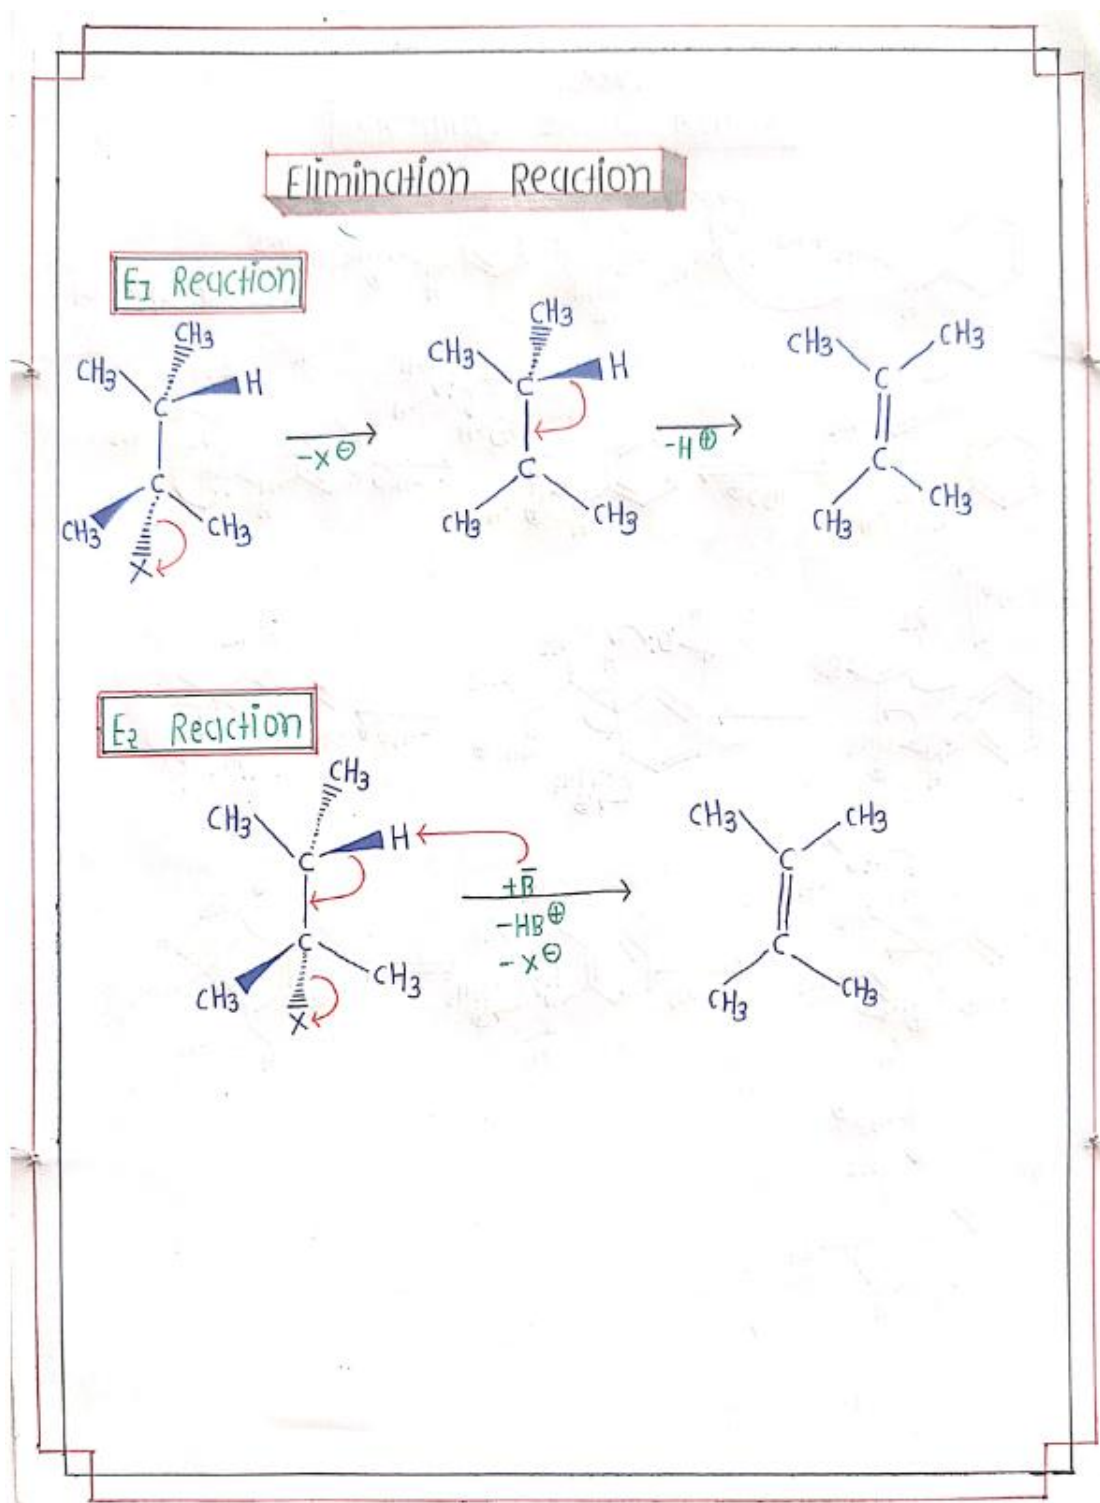 Elimination Reaction
E1 Reaction
CH3
CH3
H
C
C
CH3
CH3
X
-X⊖
CH3
CH3
H
C
C
CH3
CH3
-H⊕
CH3
CH3
C
C
CH3
CH3
E2 Reaction
CH3
CH3
H
C
C
CH3
CH3
X
+B̄
-HB⊕
-X⊖
CH3
CH3
C
C
CH3
CH3